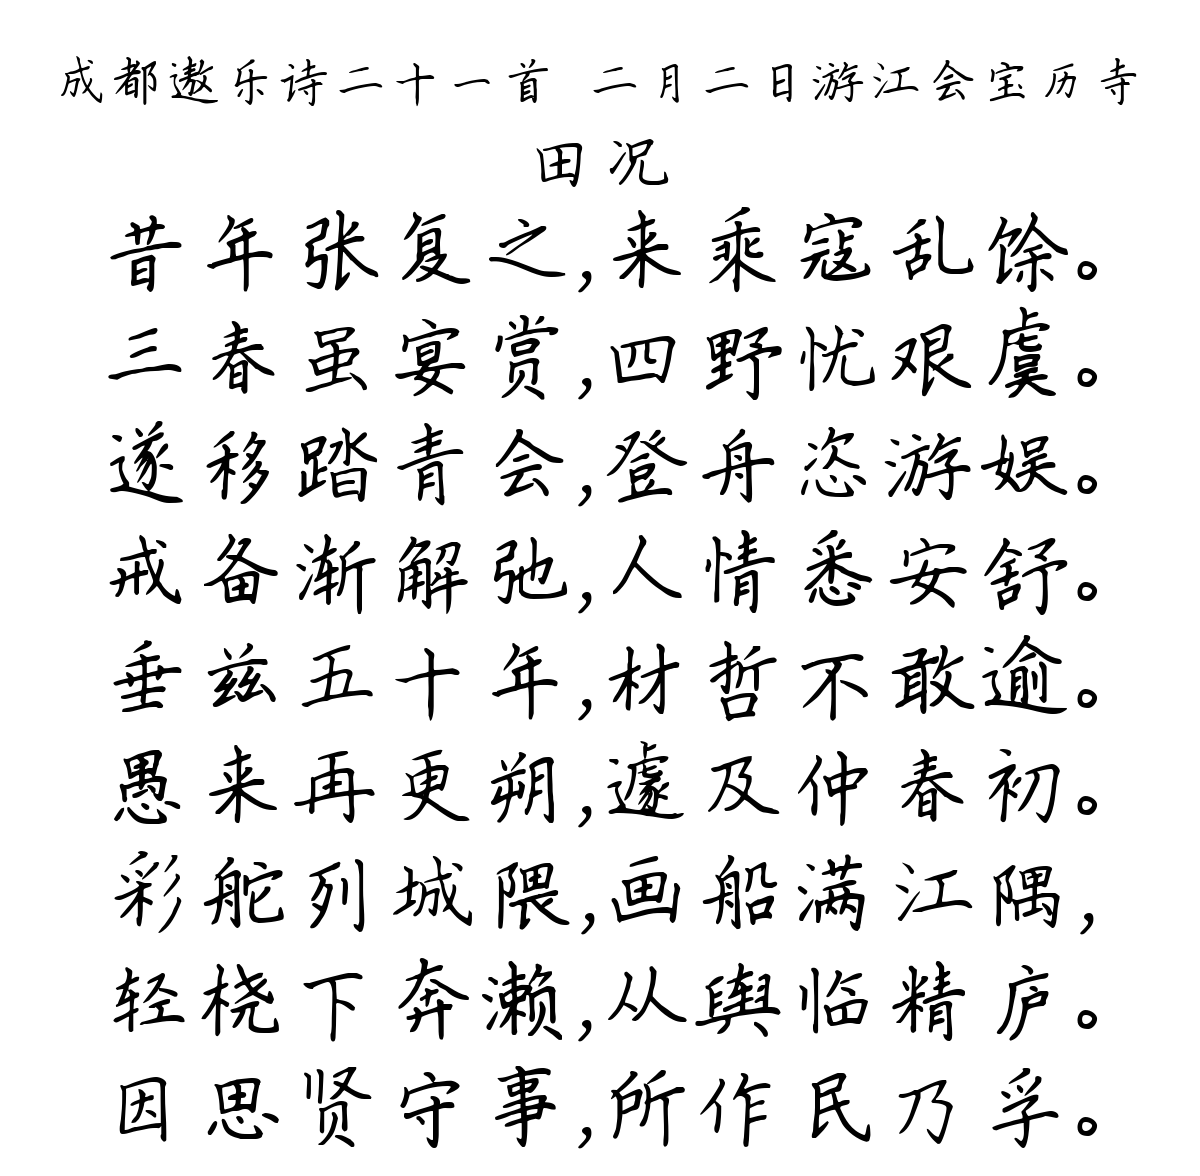 成都遨乐诗二十一首 二月二日游江会宝历寺
田况
昔年张复之,来乘寇乱馀。
三春虽宴赏,四野忧艰虞。
遂移踏青会,登舟恣游娱。
戒备渐解弛,人情悉安舒。
垂兹五十年,材哲不敢逾。
愚来再更朔,遽及仲春初。
彩舵列城隈,画船满江隅,
轻桡下奔濑,从舆临精庐。
因思贤守事,所作民乃孚。